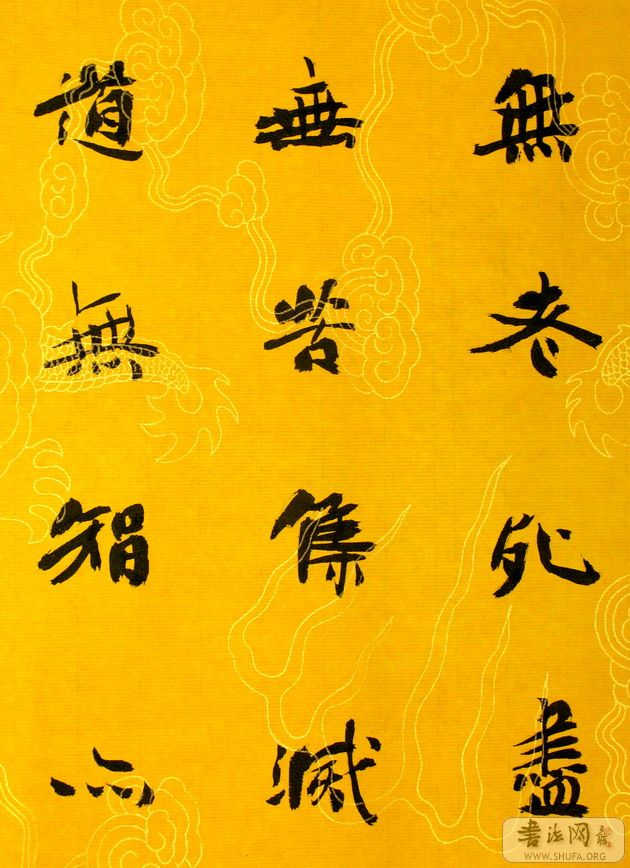 無老死盡
無苦集滅
道無智亦
書法网
WWW.SHUFA.ORG